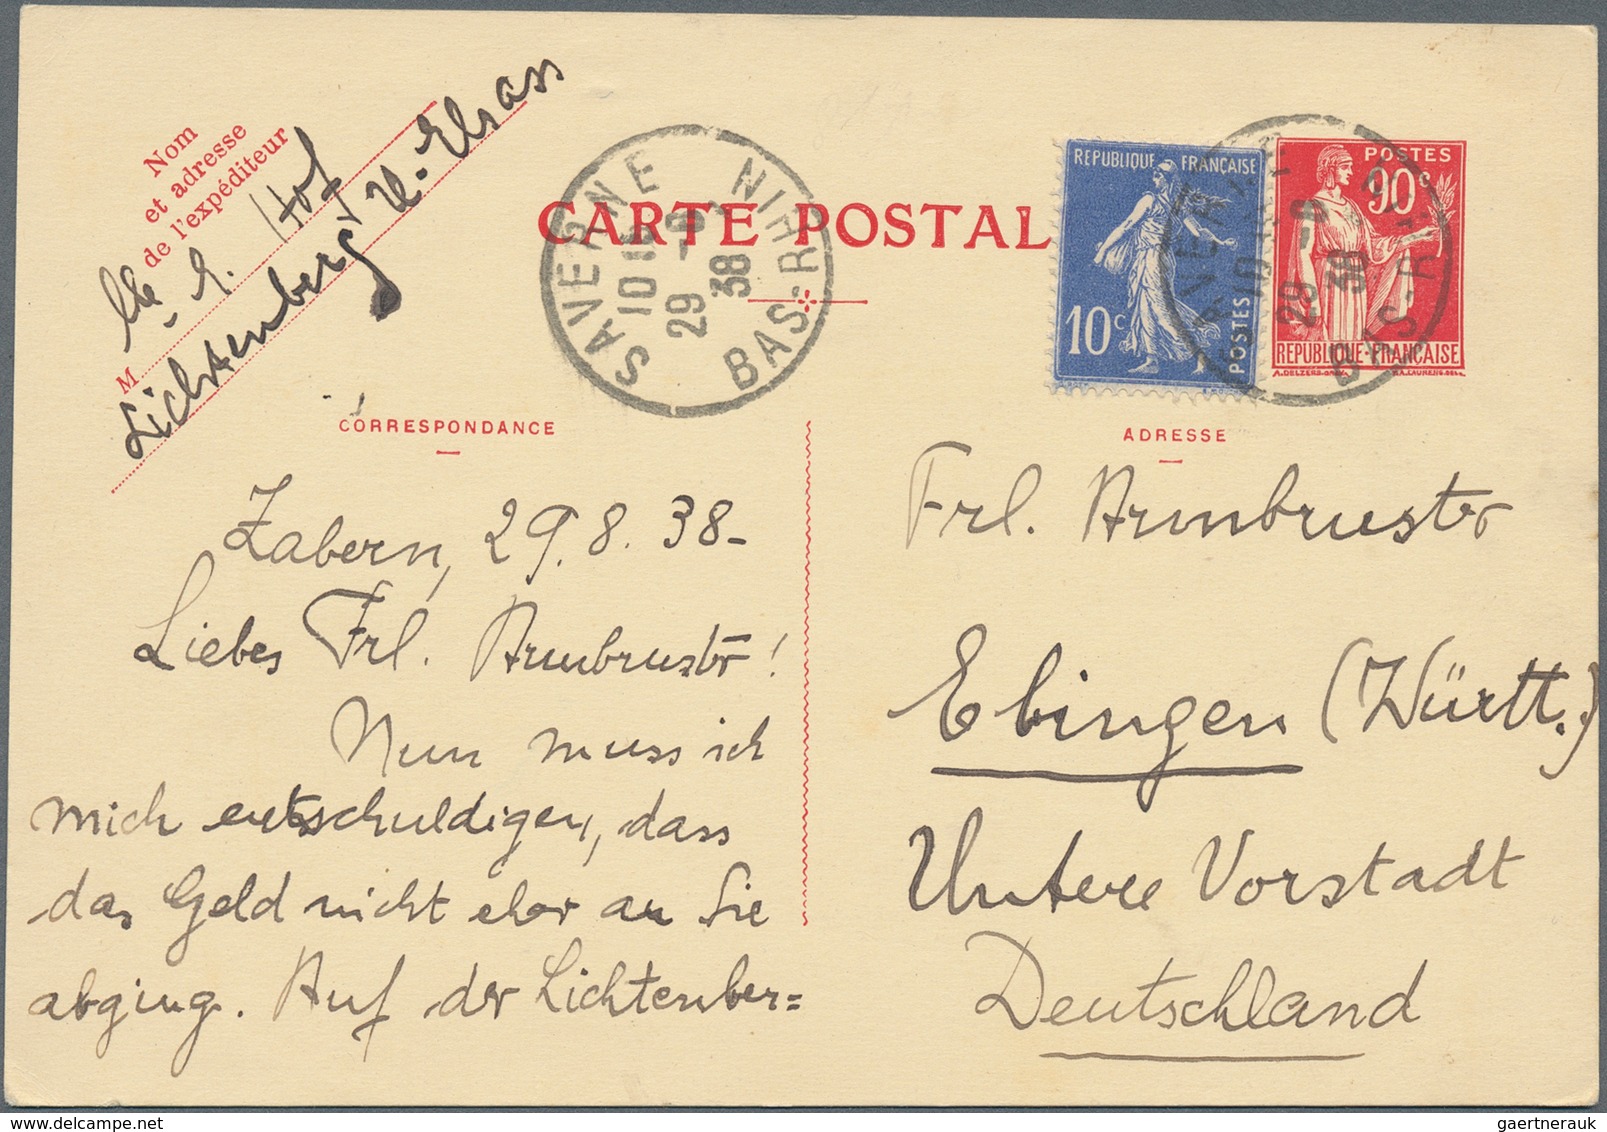 Nom
et adresse
de l'expéditeur
Hof
M
Lichtenberg U. Elsass
CARTE POSTAL
SAVERNE
BAS-RHIN
29 -8
38
REPUBLIQUE FRANÇAISE
10c
POSTES
POSTES
90c
REPUBLIQUE-FRANÇAISE
CORRESPONDANCE
Zabern, 29.8.38-
Liebes Frl. Armbruster!
Nun muss ich
mich entschuldigen, dass
das Geld nicht eher an Sie
abging. Auf der Lichtenber=
ADRESSE
Frl. Armbruster
Ebingen (Württ.)
Untere Vorstadt
Deutschland
gaertnerauk @ delcampe.net